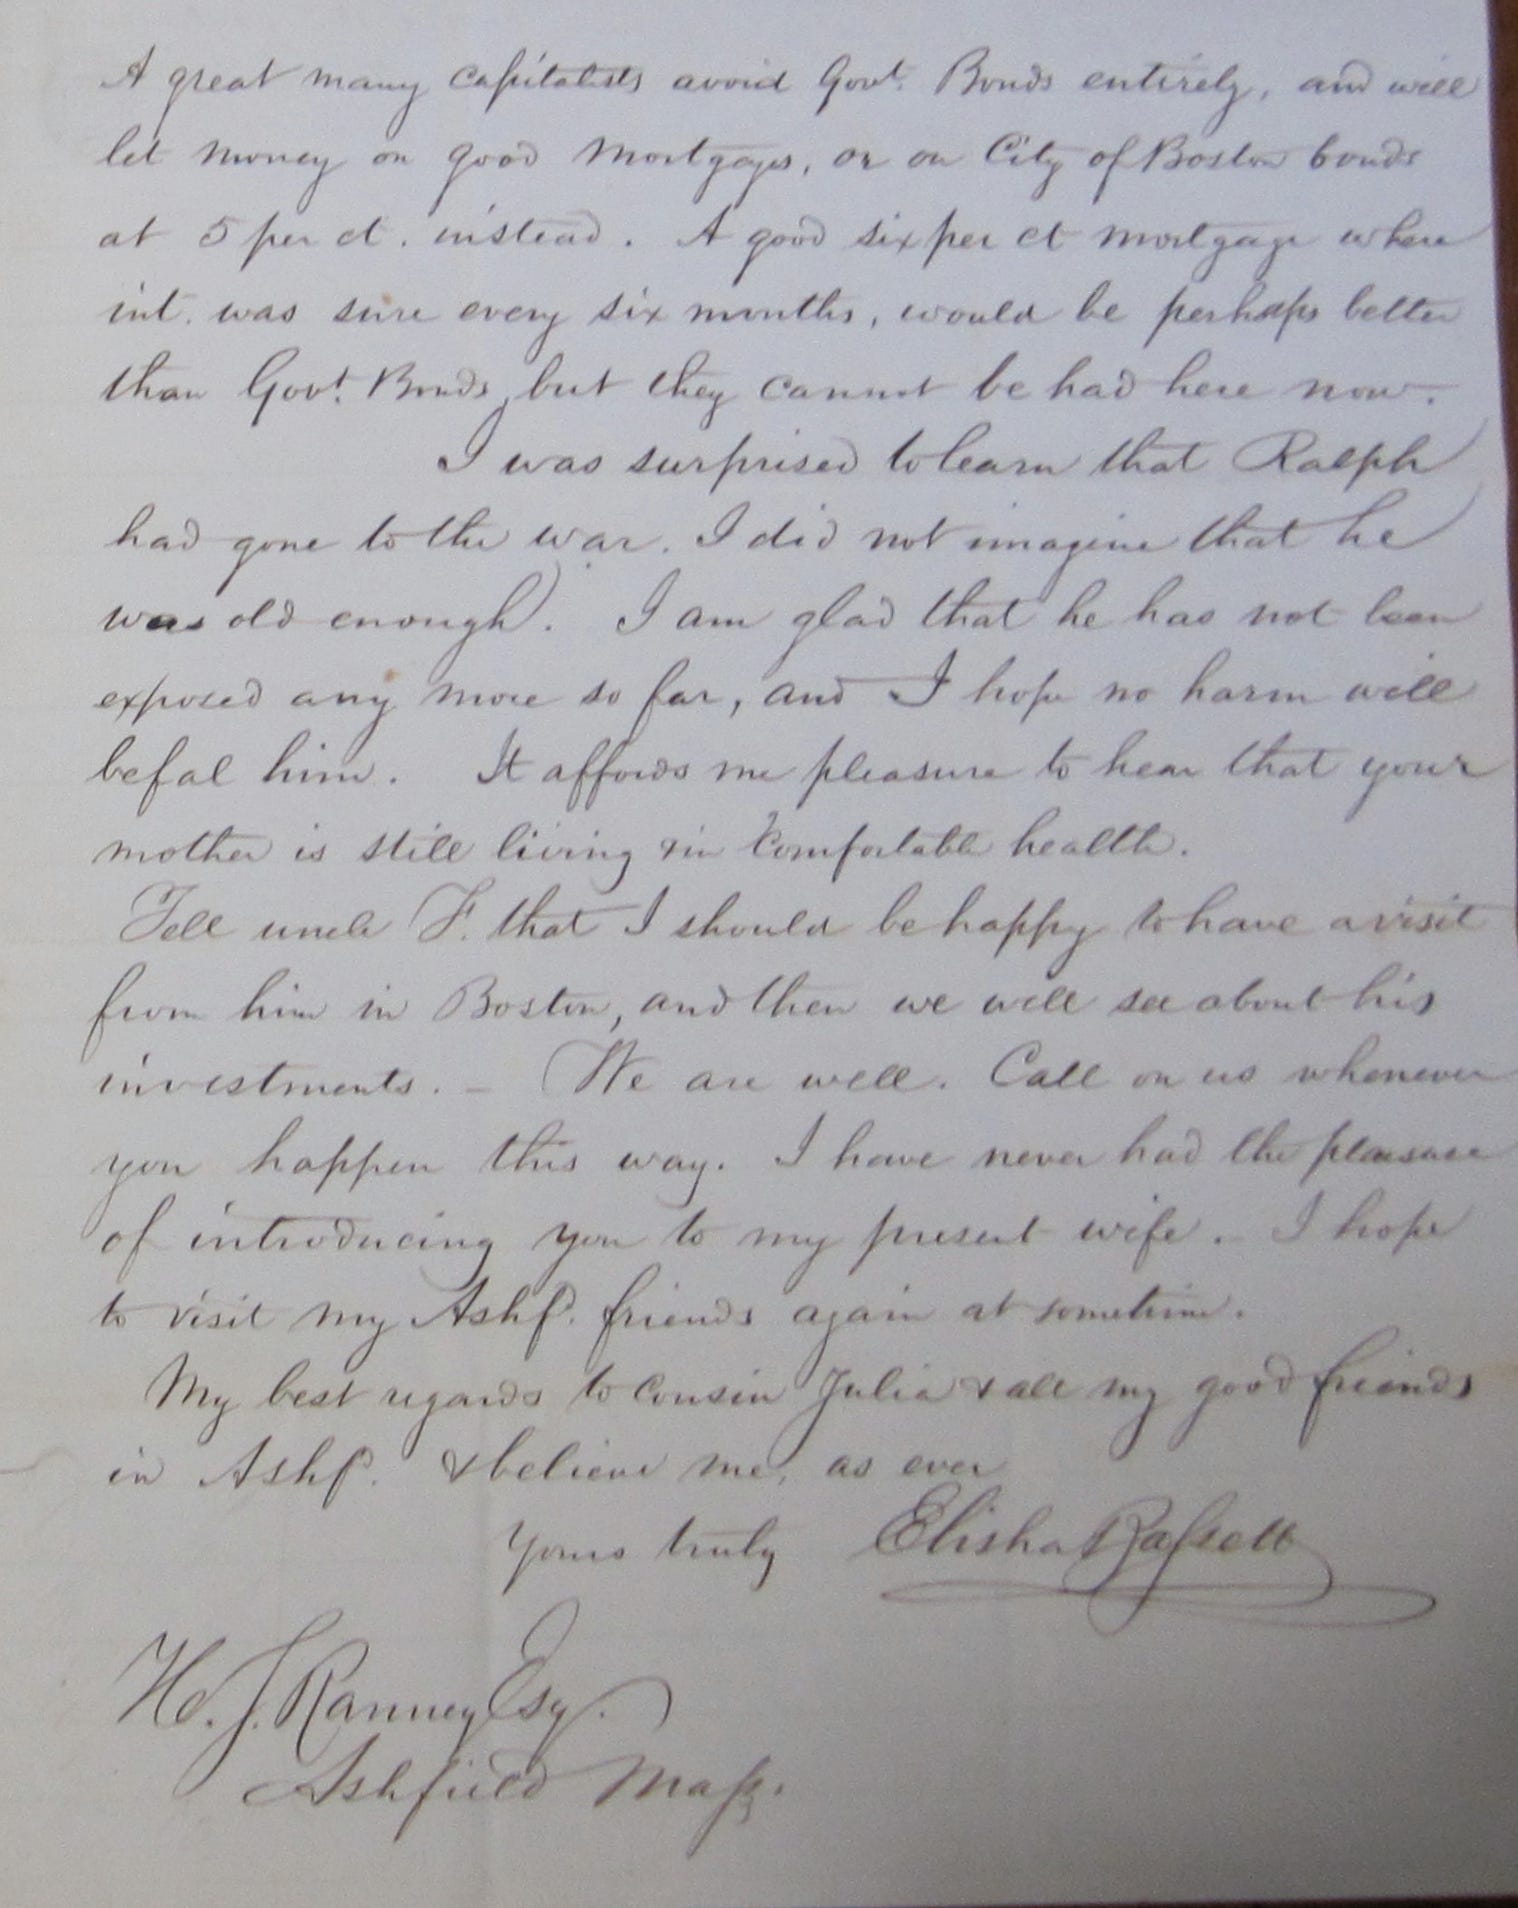 A great many capitalists avoid Govt. Bonds entirely, and will
let money on good mortgages, or on City of Boston bonds
at 5 per ct. instead. A good six per ct mortgage where
int. was sure every six months, would be perhaps better
than Govt. Bonds, but they cannot be had here now.
I was surprised to learn that Ralph
had gone to the war. I did not imagine that he
was old enough. I am glad that he has not been
exposed any more so far, and I hope no harm will
befal him. It affords me pleasure to hear that your
mother is still living & in comfortable health.
Tell uncle F. that I should be happy to have a visit
from him in Boston, and then we will see about his
investments. – We are well. Call on us whenever
you happen this way. I have never had the pleasure
of introducing you to my present wife. – I hope
to visit my Ashfd. friends again at sometime.
My best regards to cousin Julia & all my good friends
in Ashfd. & believe me, as ever
Yours truly Elisha Bassett
H. J. Ranney Esq.
Ashfield Mass.